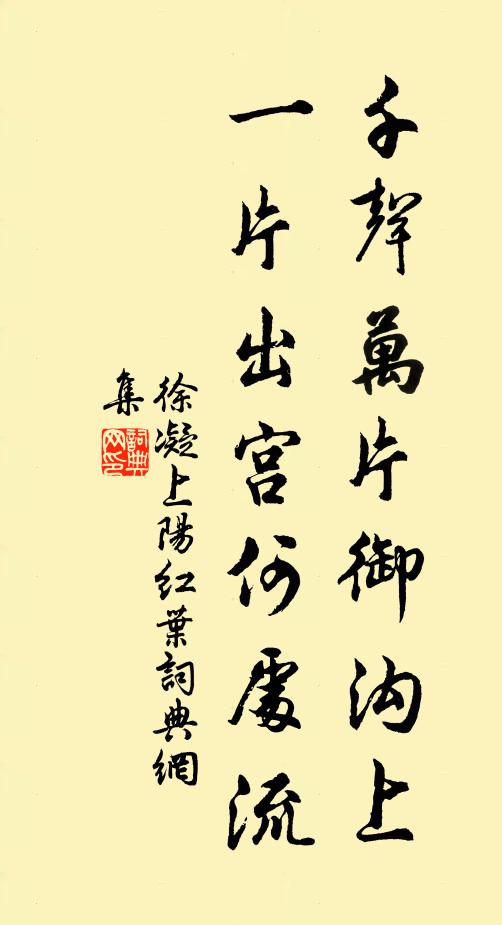 千聲萬片御沟上
一片出宫何處流
徐凝上陽红葉詞典網
集
詞典
网印